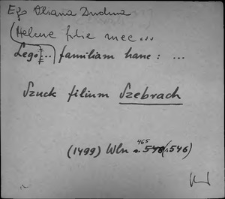 Ego Olrana Dudina
(Helene filie mee...
Lego ...) familiam hanc : ...
Szuck filium Szebrach
(1499) Wln 465 546)